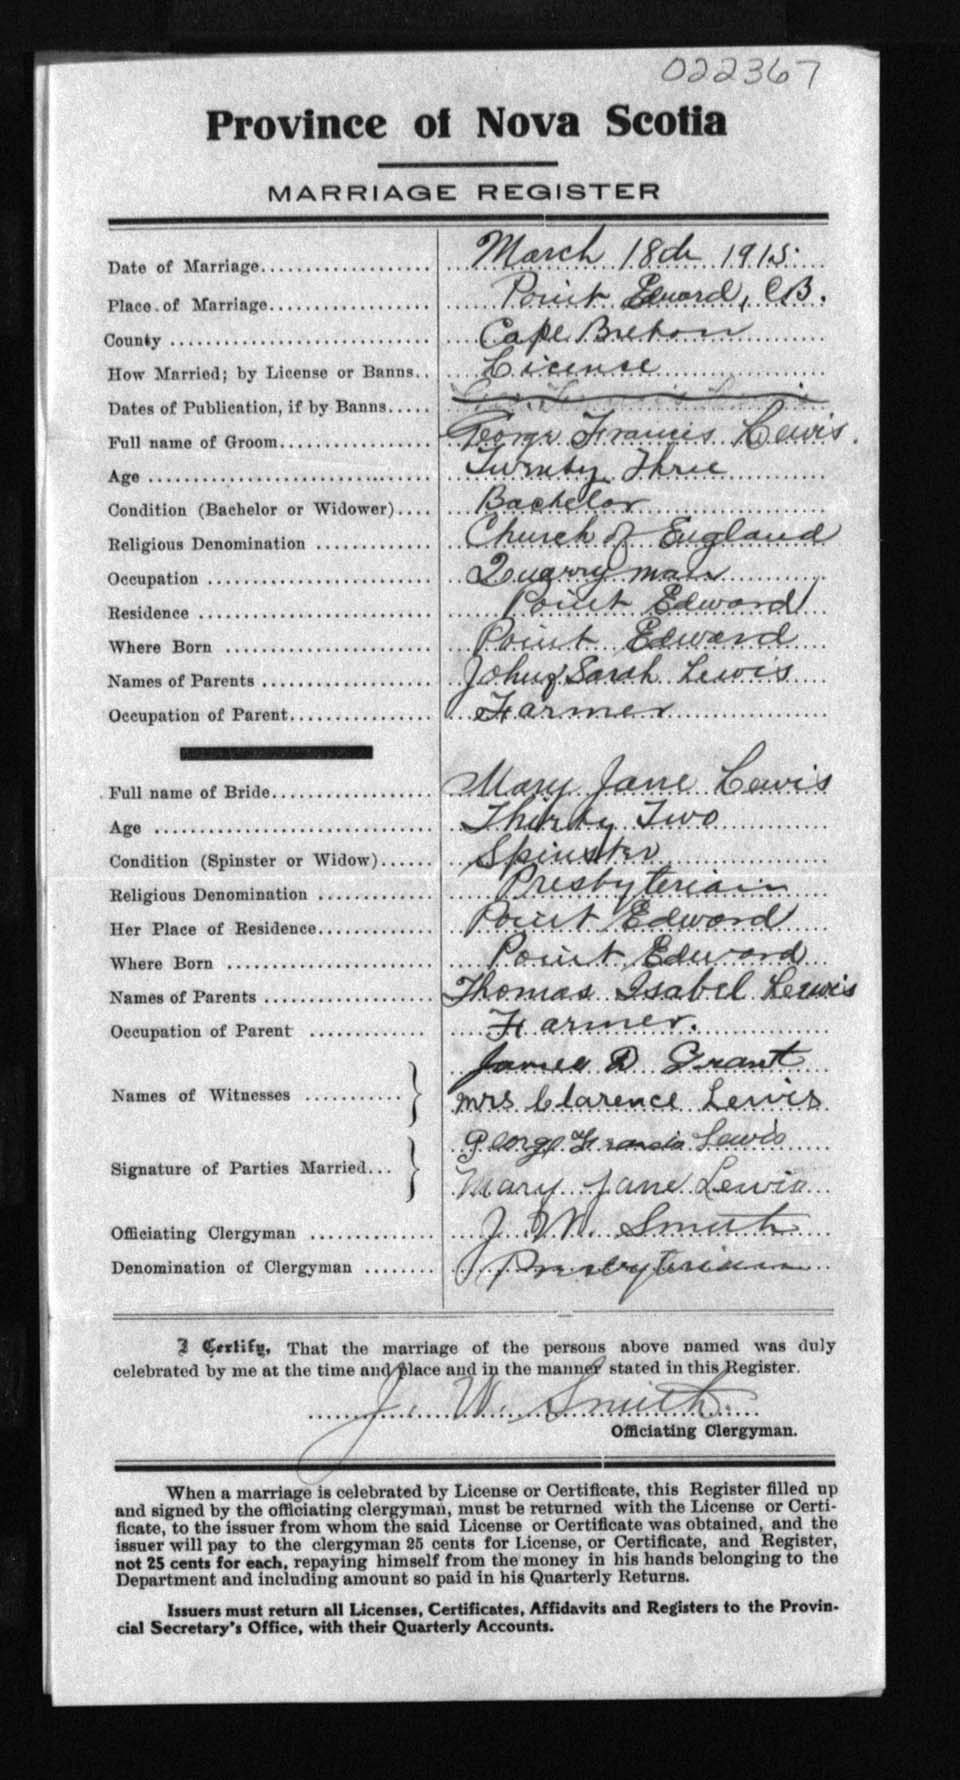 022367
Province of Nova Scotia
MARRIAGE REGISTER
Date of Marriage.................... March 18th 1915.
Place of Marriage................... Point Edward, CB.
County ............................... Cape Breton
How Married; by License or Banns.. License
Dates of Publication, if by Banns.....
Full name of Groom.................. George Francis Lewis.
Age .................................. Twenty Three
Condition (Bachelor or Widower).... Bachelor
Religious Denomination .............. Church of England
Occupation ........................... Quarry man
Residence ............................ Point Edward
Where Born ........................... Point Edward
Names of Parents ..................... John & Sarah Lewis
Occupation of Parent................. Farmer
Full name of Bride................... Mary Jane Lewis
Age .................................. Thirty Two
Condition (Spinster or Widow)...... Spinster
Religious Denomination .............. Presbyterian
Her Place of Residence............... Point Edward
Where Born ........................... Point Edward
Names of Parents ..................... Thomas Isabel Lewis
Occupation of Parent ................ Farmer.
James D Grant
Names of Witnesses ........... } Mrs Clarence Lewis
George Francis Lewis
Signature of Parties Married... }
Mary Jane Lewis
Officiating Clergyman ............... J. W. Smith
Denomination of Clergyman ........ Presbyterian
I Certify, That the marriage of the persons above named was duly
celebrated by me at the time and place and in the manner stated in this Register.
J. W. Smith
Officiating Clergyman.
When a marriage is celebrated by License or Certificate, this Register filled up
and signed by the officiating clergyman, must be returned with the License or Certi-
ficate, to the issuer from whom the said License or Certificate was obtained, and the
issuer will pay to the clergyman 25 cents for License, or Certificate, and Register,
not 25 cents for each, repaying himself from the money in his hands belonging to the
Department and including amount so paid in his Quarterly Returns.
Issuers must return all Licenses, Certificates, Affidavits and Registers to the Provin-
cial Secretary's Office, with their Quarterly Accounts.